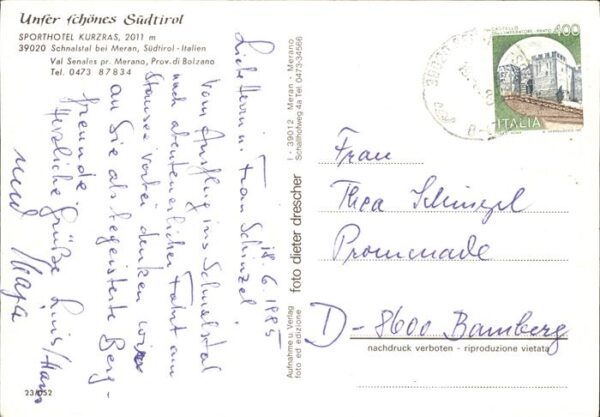 Unser schönes Südtirol
SPORTHOTEL KURZRAS, 2011 m
39020 Schnalstal bei Meran, Südtirol - Italien
Val Senales pr. Merano, Prov. di Bolzano
Tel. 0473 87834
18.6.1985
Liebe Herrn u. Frau Schinzel
Vom Ausflug ins Schnalstal
nach abenteuerlicher Fahrt am
Stausee vorbei denken wir
an Sie als begeisterte Berg-
freunde
Herzliche Grüße Luis/Hans
und Maja
23/052
I - 39012 Meran - Merano
Schallhofweg 4a Tel. 0473-34566
foto dieter drescher
Aufnahme u. Verlag
foto ed edizione
400
ITALIA
Frau
Thea Schinzel
Promenade
D-8600 Bamberg
nachdruck verboten - riproduzione vietata